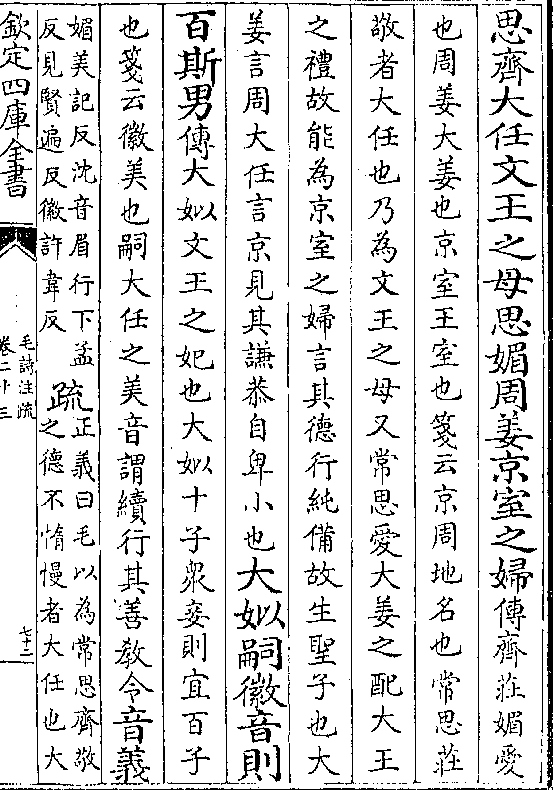 思齊大任文王之母思媚周姜京室之婦傳齊莊媚愛
也周姜大姜也京室王室也箋云京周地名也常思莊
敬者大任也乃為文王之母又常思愛大姜之配大王
之禮故能為京室之婦言其德行純備故生聖子也大
姜言周大任言京見其謙恭自卑小也大姒嗣徽音則
百斯男傳大姒文王之妃也大姒十子衆妾則宜百子
也箋云徽美也嗣大任之美音謂續行其善教令音義
媚美記反沈音眉行下孟
反見賢遍反徽許韋反
疏
正義曰毛以為常思齊敬
之德不惰慢者大任也大
欽定四庫全書
毛詩注疏
卷二十三
七十二